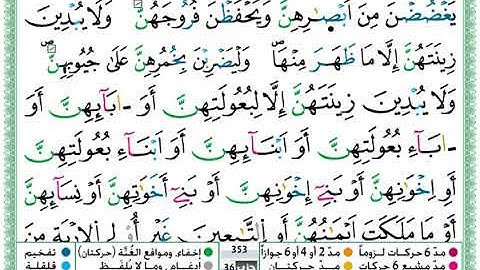 يَغْضُضْنَ مِنْ أَبْصَٰرِهِنَّ وَيَحْفَظْنَ فُرُوجَهُنَّ وَلَا يُبْدِينَ
زِينَتَهُنَّ إِلَّا مَا ظَهَرَ مِنْهَا ۖ وَلْيَضْرِبْنَ بِخُمُرِهِنَّ عَلَىٰ جُيُوبِهِنَّ ۖ
وَلَا يُبْدِينَ زِينَتَهُنَّ إِلَّا لِبُعُولَتِهِنَّ أَوْ ءَابَآئِهِنَّ أَوْ
ءَابَآءِ بُعُولَتِهِنَّ أَوْ أَبْنَآئِهِنَّ أَوْ أَبْنَآءِ بُعُولَتِهِنَّ
أَوْ إِخْوَٰنِهِنَّ أَوْ بَنِىٓ إِخْوَٰنِهِنَّ أَوْ بَنِىٓ أَخَوَٰتِهِنَّ أَوْ نِسَآئِهِنَّ
أَوْ مَا مَلَكَتْ أَيْمَٰنُهُنَّ أَوِ ٱلتَّٰبِعِينَ غَيْرِ أُو۟لِى ٱلْإِرْبَةِ مِنَ
مدّ 6 حركات لزوماً مدّ 2 أو 4 أو 6 جوازاً 353 إخفاء، ومواقع الغُنَّة (حركتان) تفخيم
مدّ حركتان إدغام، وما لا يُلفَظ قلقلة